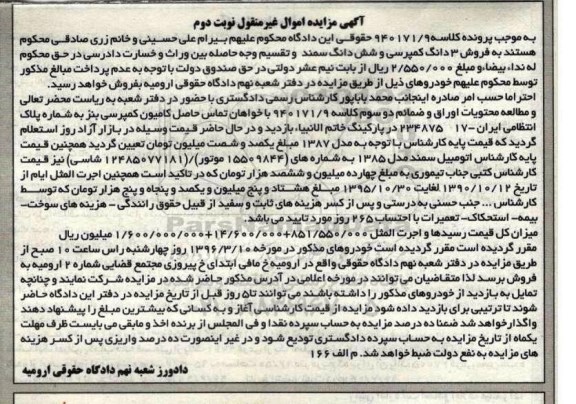 آگهی مزایده اموال غیرمنقول نوبت دوم
به موجب پرونده کلاسه ۹۴۰۱۷۱/۹ حقوقی این دادگاه محکوم علیهم بیرام علی حسینی و خانم زری صادقی محکوم
هستند به فروش ۳ دانگ کمپرسی و شش دانگ سمند و تقسیم وجه حاصله بین وراث و خسارت دادرسی در حق محکوم
له ندا، بیضاء و مبلغ ۲/۵۵۰/۰۰۰ ریال از بابت نیم عشر دولتی در حق صندوق دولت با توجه به عدم پرداخت مبالغ مذکور
توسط محکوم علیهم خودروهای ذیل از طریق مزایده در دفتر شعبه نهم دادگاه حقوقی ارومیه بفروش خواهد رسید.
احتراما حسب امر صادره اینجانب محمد باباپور کارشناس رسمی دادگستری با حضور در دفتر شعبه به ریاست محضر تعالی
و مطالعه محتویات اوراق و ضمائم دو سوم کلاسه ۹۴۰۱۷۱/۹ با خواهان تماس حاصل کامیون کمپرسی بنز به شماره پلاک
انتظامی ایران -۱۷ ۲۳۴۸۷۵ در پارکینگ خاتم الانبیا، بازدید و در حال حاضر قیمت وسیله در بازار آزاد روز استعلام
گردید که قیمت پایه کارشناس با توجه به مدل ۱۳۸۷ مبلغ یکصد و شصت میلیون تومان تعیین گردید همچنین قیمت
پایه کارشناس اتومبیل سمند مدل ۱۳۸۵ به شماره های (۱۵۵۰۹۸۴۴ موتور)/(۱۲۴۸۵۰۷۷۱۸۱ شاسی) نیز قیمت
کارشناس کتبی جناب تیموری به مبلغ چهارده میلیون و ششصد هزار تومان که در تاکید است همچنین اجرت المثل ایام از
تاریخ ۱۳۹۰/۱۰/۱۲ لغایت ۱۳۹۵/۱۰/۳۰ مبلغ هشتاد و پنج میلیون و یکصد و پنجاه و پنج هزار تومان که توسط
کارشناس ... جنب حسنی به درستی و پس از کسر هزینه های ثابت و سفید از قبیل حقوق رانندگی - هزینه های سوخت-
بیمه- استحکاک- تعمیرات با احتساب ۲۶۵ روز مورد تایید می باشد
میزان کل قیمت رسیدها و اجرت المثل ۸۵۱/۵۵۰/۰۰۰+۱۴/۶۰۰/۰۰۰+۱/۶۰۰/۰۰۰/۰۰۰ میلیون ریال
مقرر گردیده است مقرر گردیده است خودروهای مذکور در مورخه ۱۳۹۶/۳/۱۰ روز چهارشنبه راس ساعت ۱۰ صبح از
طریق مزایده در دفتر شعبه نهم دادگاه حقوقی واقع در ارومیه خ مافی ابتدای خ پیروزی مجتمع قضایی شماره ۲ ارومیه به
فروش برسد لذا متقاضیان می توانند در مورخه اعلامی در آدرس مذکور حاضر شده در مزایده شرکت نمایند و چنانچه
تمایل به بازدید از خودروهای مذکور را داشته باشند می توانند تا ۵ روز قبل از تاریخ مزایده در دفتر این دادگاه حاضر
شوند تا ترتیبی برای بازدید داده شود مزایده از قیمت کارشناسی آغاز و به کسانی که بیشترین مبلغ را پیشنهاد دهند
واگذار خواهد شد ضمنا ده درصد مزایده به حساب سپرده نقدا و فی المجلس از برنده اخذ و مابقی می بایست ظرف مهلت
یکماه از تاریخ مزایده به حساب سپرده دادگستری تودیع شود و در غیر اینصورت ده درصد واریزی پس از کسر هزینه
های مزایده به نفع دولت ضبط خواهد شد. م الف ۱۶۶
دادورز شعبه نهم دادگاه حقوقی ارومیه